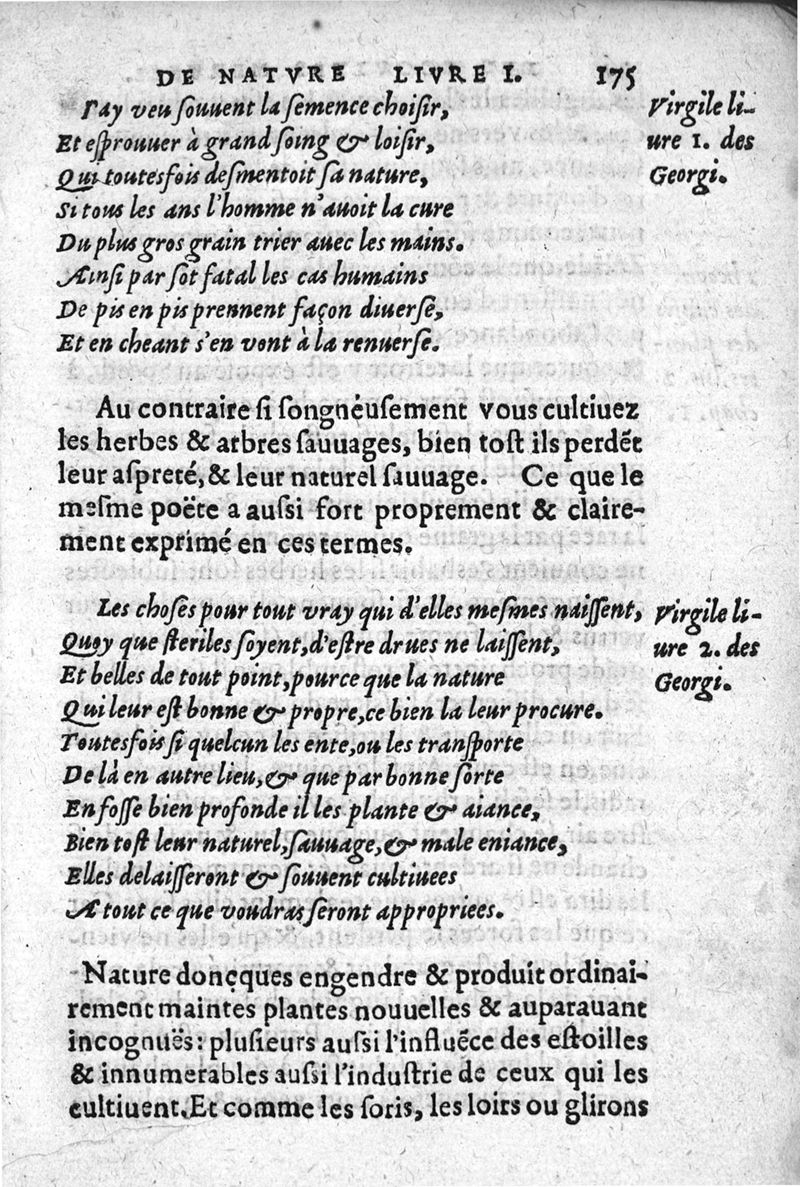 DE NATVRE LIVRE I. 175
I'ay veu souuent la semence choisir,
Et esprouuer à grand soing & loisir,
Qui toutesfois desmentoit sa nature,
Si tous les ans l'homme n'auoit la cure
Du plus gros grain trier auec les mains.
Ainsi par sot fatal les cas humains
De pis en pis prennent façon diuerse,
Et en cheant s'en vont à la renuerse.
Virgile li-
ure 1. des
Georgi.
Au contraire si songneusement vous cultiuez
les herbes & arbres sauuages, bien tost ils perdẽt
leur aspreté, & leur naturel sauuage. Ce que le
mesme poëte a aussi fort proprement & claire-
ment exprimé en ces termes.
Les choses pour tout vray qui d'elles mesmes naissent,
Quoy que steriles soyent, d'estre drues ne laissent,
Et belles de tout point, pource que la nature
Qui leur est bonne & propre, ce bien la leur procure.
Toutesfois si quelcun les ente, ou les transporte
De là en autre lieu, & que par bonne sorte
En fosse bien profonde il les plante & aiance,
Bien tost leur naturel, sauuage, & male eniance,
Elles delaisseront & souuent cultiuees
A tout ce que voudras seront appropriees.
Virgile li-
ure 2. des
Georgi.
Nature doncques engendre & produit ordinai-
rement maintes plantes nouuelles & auparauant
incognuës: plusieurs aussi l'influẽce des estoilles
& innumerables aussi l'industrie de ceux qui les
cultiuent. Et comme les soris, les loirs ou glirons